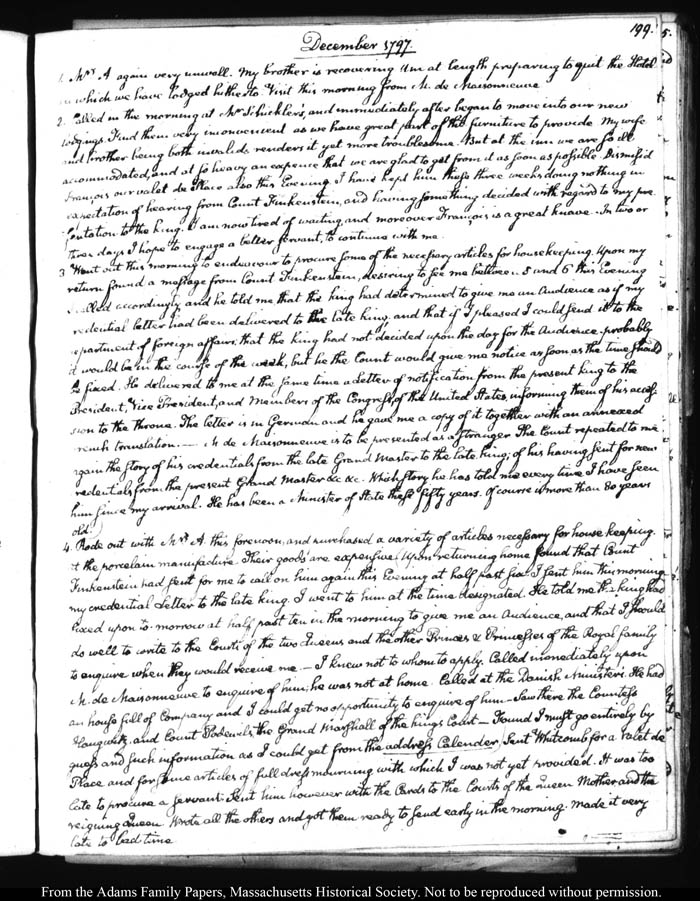 199.
December 1797.
1. Mrs. A again very unwell. My brother is recovering. Am at length preparing to quit the Hotel
in which we have lodged hitherto. Visit this morning from M. de Maisonneuve
2. Called in the morning at Mr Schickler's, and immediately after began to move into our new
lodgings. Find them very inconvenient as we have great part of the furniture to provide. My wife
and brother being both invalids renders it yet more troublesome. But at the inn we are so ill
accommodated, and at so heavy an expence that we are glad to get from it as soon as possible. Dismiss'd
François our valet de place also this Evening. I have kept him these three weeks doing nothing in
expectation of hearing from Count Finkenstein, and having something decided with regard to my pre-
sentation to the king. I am now tired of waiting, and moreover François is a great knave. In two or
three days I hope to engage a better servant, to continue with me.
3. Went out this morning to endeavour to procure some of the necessary articles for housekeeping. Upon my
return found a message from Count Finkenstein, desiring to see me between 5 and 6 this Evening
I called accordingly, and he told me that the king had determined to give me an Audience as if my
credential letter had been delivered to the late king, and that if I pleased I could send it to the
department of foreign affairs, that the king had not decided upon the day for the Audience, probably
it would be in the course of the week, but he the Count would give me notice as soon as the time should
be fixed. He delivered to me at the same time a letter of notification from the present king to the
President, Vice President, and Members of the Congress, of the United States, informing them of his acces-
sion to the throne. The letter is in German and he gave me a copy of it together with an annexed
french translation. — M. de Maisonneuve is to be presented as a stranger. The Count repeated to me
again the story of his credentials from the late Grand Master to the late king; of his having sent for new
credentials from the present Grand Master &c &c. Which story he has told me every time I have seen
him since my arrival. He has been a Minister of State these fifty years. Of course is more than 80 years
old.
4. Rode out with Mrs. A. this forenoon, and purchased a variety of articles necessary for house keeping.
at the porcelain manufacture. Their goods are expensive. Upon returning home found that Count
Finkenstein had sent for me to call on him again this Evening at half past six. I sent him this morning
my credential Letter to the late king. I went to him at the time designated. He told me the king had
fixed upon to-morrow at half past ten in the morning to give me an Audience, and that I should
do well to write to the Courts of the two Queens and the other Princes & Princesses of the Royal family
to enquire when they would receive me. — I knew not to whom to apply. Called immediately upon
M. de Maisonneuve to enquire of him; he was not at home. Called at the Danish Minister's. He had
an house full of Company and I could get no opportunity to enquire of him — Saw there the Countess
Haugwitz, and Count Podewils, the Grand Marshall of the kings Court — Found I must go entirely by
guess and such information as I could get from this address Calender. Sent Whitcomb for a valet de
Place and for some articles of full dress mourning with which I was not yet provided. It was too
late to procure a servant. Sent him however with the Cards to the Courts of the Queen Mother, and the
reigning Queen. Wrote all the others and got them ready to send early in the morning. Made it very
late to bed time
From the Adams Family Papers, Massachusetts Historical Society. Not to be reproduced without permission.